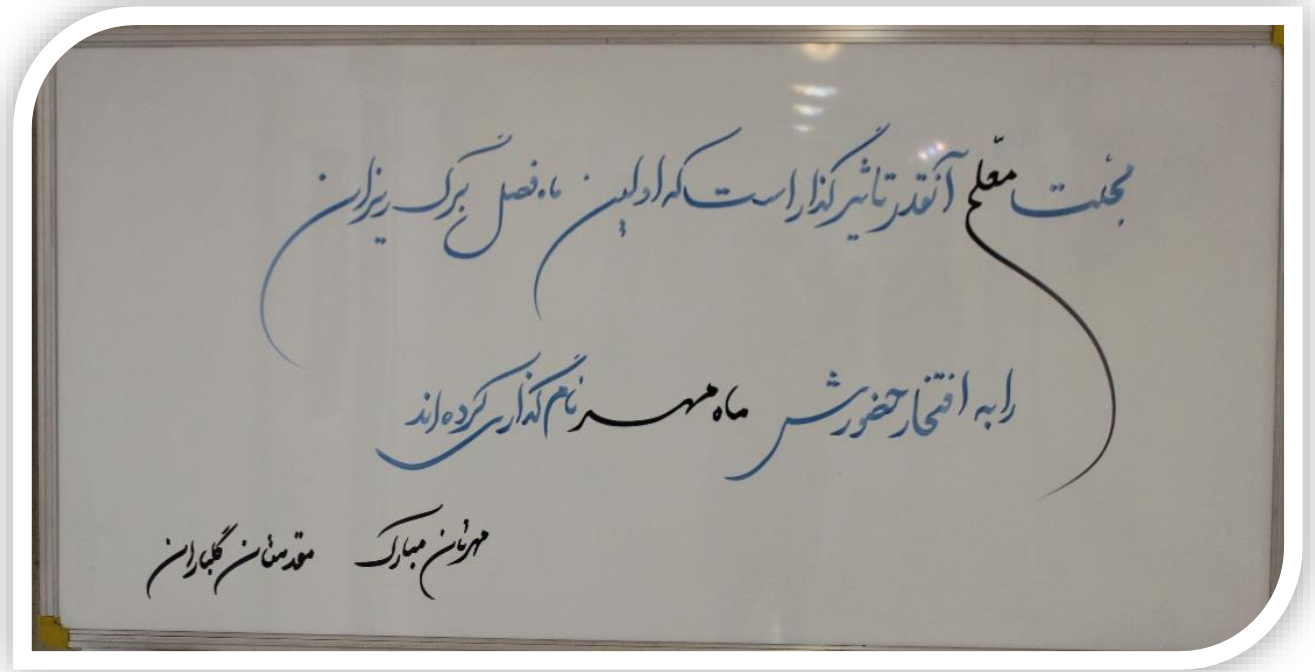 محبت معلم آنقدر تاثیرگذار است که اولین ماه فصل برگ ریزان
را به افتخار حضورش ماه مهر نام گذاری کرده اند
مهرتان مبارک مقدمتان گلباران